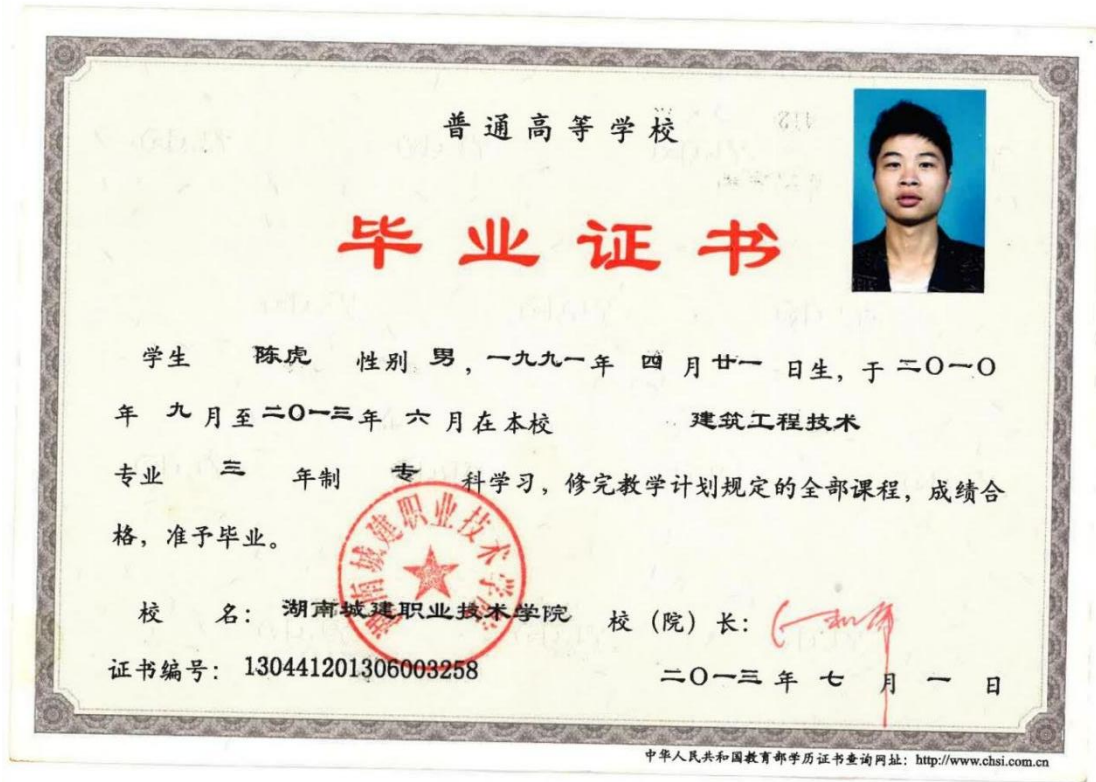 普通高等学校
毕业证书
学生 陈虎 性别 男，一九九一年 四 月 廿一 日生，于 二〇一〇
年 九 月至 二〇一三 年 六 月在本校 建筑工程技术
专业 三 年制 专 科学习，修完教学计划规定的全部课程，成绩合
格，准予毕业。
湖南城建职业技术学院
校 名：湖南城建职业技术学院 校（院）长：
证书编号：130441201306003258 二〇一三 年 七 月 一 日
中华人民共和国教育部学历证书查询网址：http://www.chsi.com.cn